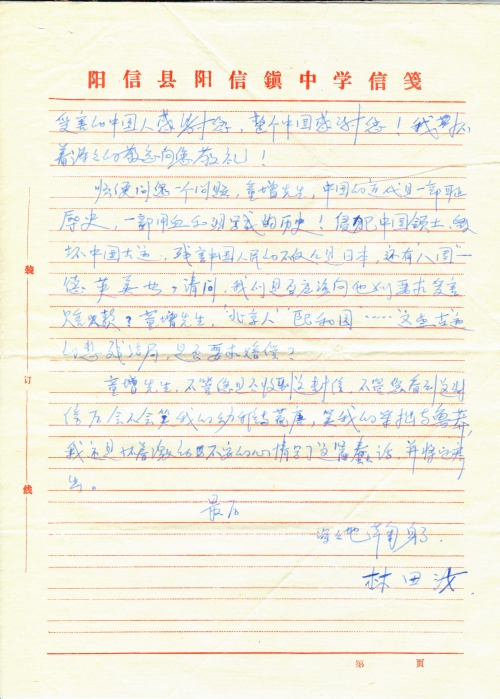 阳信县阳信鎮中学信笺
受害的中国人感谢您，整个中国感谢您！我怀
着深深的敬意向您敬礼！
顺便问您一个问题，童增先生，中国的近代是一部耻
辱史，一部用血和泪写成的历史！侵犯中国领土，
坏中国主，残害中国人民的不仅仅是日本，还有"八国"
德、英、美。请问，我们是否应该向他们要求受害
赔款？童增先生，"北京人""圆和园……这些
的悲残结局，是否要求赔偿？
童增先生，不管您是否收到这封信，不管您看到这封
信后会不会笑我的幼稚与荒唐，笑我的笨拙与鲁莽，
我还是怀着激动不安的心情写了这篇蠢话，并将它寄
出。
最后
深深地鞠躬。
林田
装
订
线
第 页